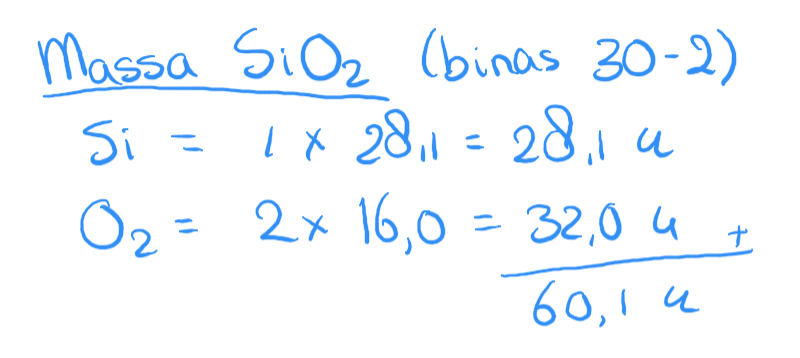 Massa SiO₂ (binas 30-2)
Si = 1 x 28,1 = 28,1 u
O₂ = 2 x 16,0 = 32,0 u +
60,1 u